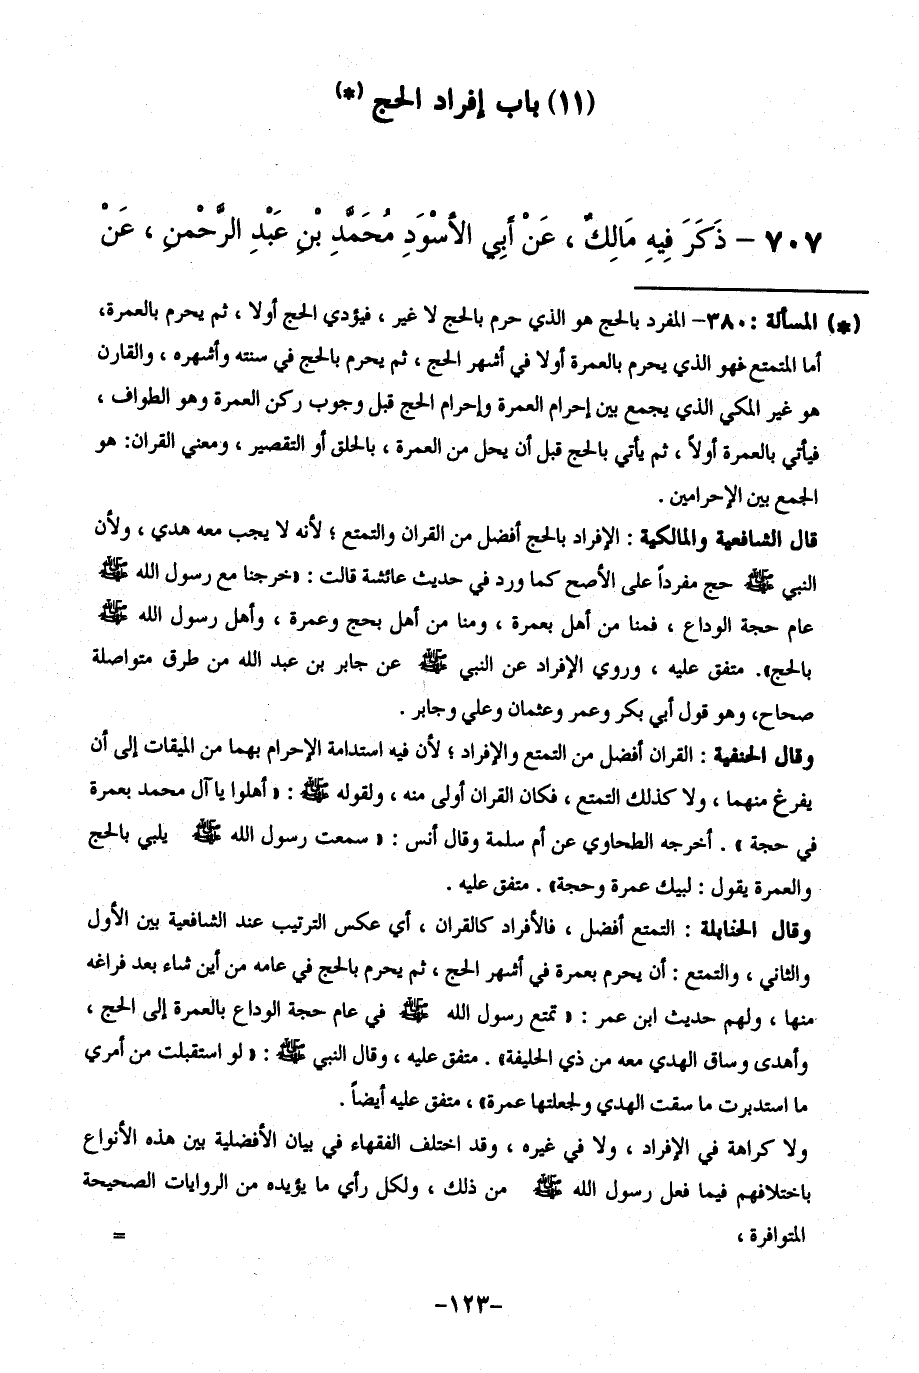 (١١) باب إفراد الحج (*)
٧٠٧ – ذَكَرَ فِيهِ مَالِكٌ ، عَنْ أَبِي الأَسْوَدِ مُحَمَّدِ بْنِ عَبْدِ الرَّحْمنِ ، عَنْ
(*) المسألة : ٣٨٠– المفرد بالحج هو الذي حرم بالحج لا غير ، فيؤدي الحج أولا ، ثم يحرم بالعمرة،
أما المتمتع فهو الذي يحرم بالعمرة أولا في أشهر الحج ، ثم يحرم بالحج في سنته وأشهره ، والقارن
هو غير المكي الذي يجمع بين إحرام العمرة وإحرام الحج قبل وجوب ركن العمرة وهو الطواف ،
فيأتي بالعمرة أولاً ، ثم يأتي بالحج قبل أن يحل من العمرة ، بالحلق أو التقصير ، ومعني القران: هو
الجمع بين الإحرامين .
قال الشافعية والمالكية : الإفراد بالحج أفضل من القران والتمتع ؛ لأنه لا يجب معه هدي ، ولأن
النبي ﷺ حج مفرداً على الأصح كما ورد في حديث عائشة قالت : «خرجنا مع رسول الله ﷺ
عام حجة الوداع ، فمنا من أهل بعمرة ، ومنا من أهل بحج وعمرة ، وأهل رسول الله ﷺ
بالحج». متفق عليه ، وروي الإفراد عن النبي ﷺ عن جابر بن عبد الله من طرق متواصلة
صحاح، وهو قول أبي بكر وعمر وعثمان وعلي وجابر .
وقال الحنفية : القران أفضل من التمتع والإفراد ؛ لأن فيه استدامة الإحرام بهما من الميقات إلى أن
يفرغ منهما ، ولا كذلك التمتع ، فكان القران أولى منه ، ولقوله ﷺ : « أهلوا يا آل محمد بعمرة
في حجة » . أخرجه الطحاوي عن أم سلمة وقال أنس : « سمعت رسول الله ﷺ يلبي بالحج
والعمرة يقول : لبيك عمرة وحجة» . متفق عليه .
وقال الحنابلة : التمتع أفضل ، فالأفراد كالقران ، أي عكس الترتيب عند الشافعية بين الأول
والثاني ، والتمتع : أن يحرم بعمرة في أشهر الحج ، ثم يحرم بالحج في عامه من أين شاء بعد فراغه
منها ، ولهم حديث ابن عمر : « تمتع رسول الله ﷺ في عام حجة الوداع بالعمرة إلى الحج ،
وأهدى وساق الهدي معه من ذي الحليفة» . متفق عليه ، وقال النبي ﷺ : « لو استقبلت من أمري
ما استدبرت ما سقت الهدي ولجعلتها عمرة» ، متفق عليه أيضاً .
ولا كراهة في الإفراد ، ولا في غيره ، وقد اختلف الفقهاء في بيان الأفضلية بين هذه الأنواع
باختلافهم فيما فعل رسول الله ﷺ من ذلك ، ولكل رأي ما يؤيده من الروايات الصحيحة
المتوافرة ، =
-١٢٣-